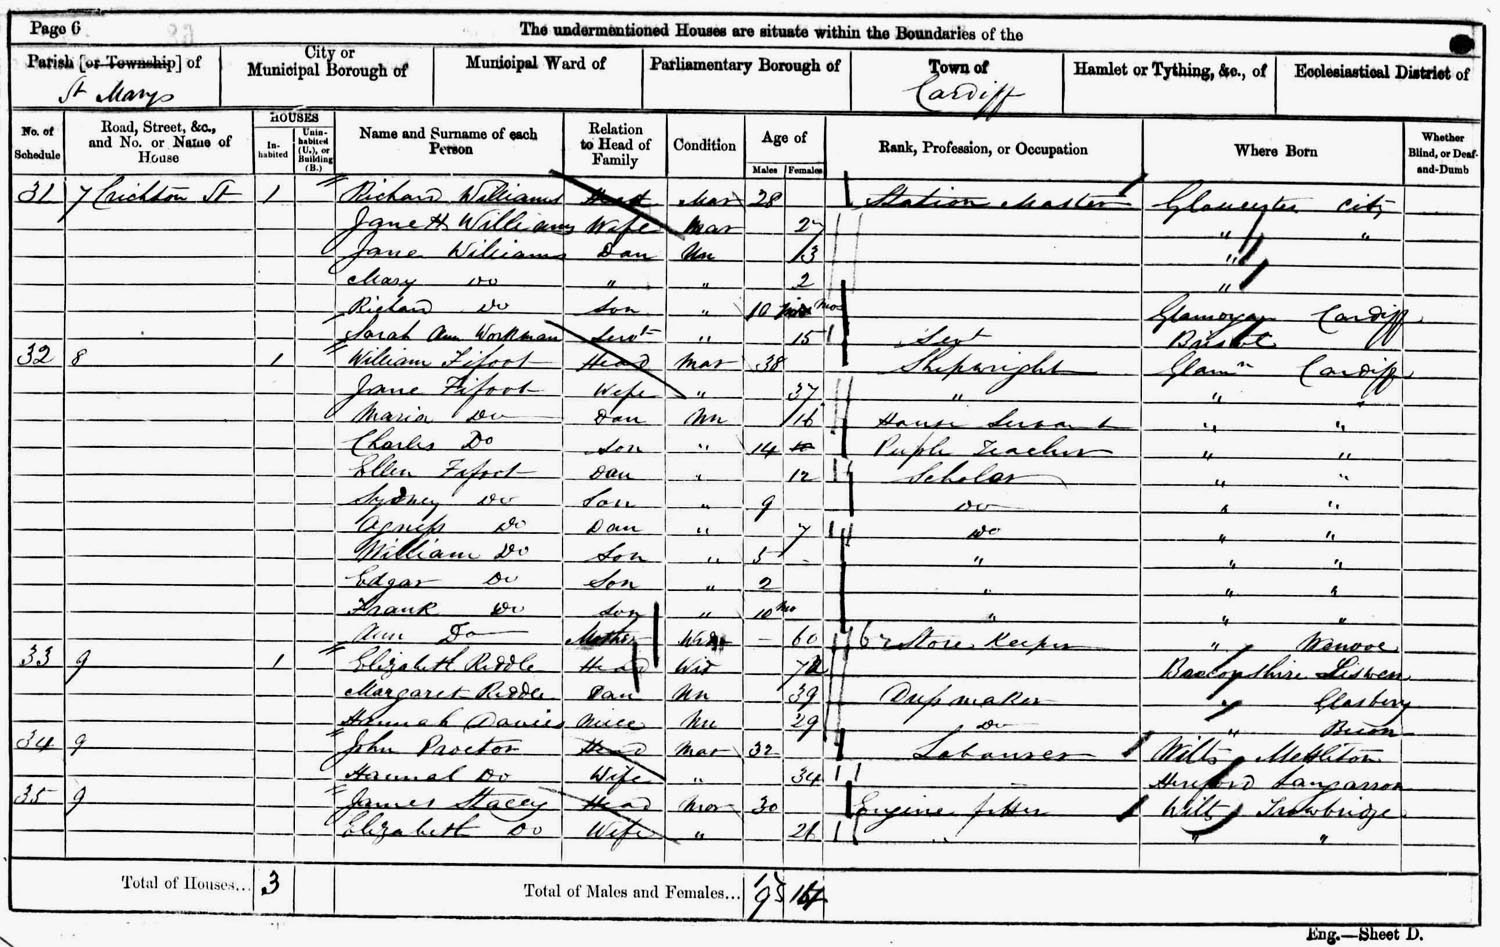 Page 6
The undermentioned Houses are situate within the Boundaries of the
Parish [or Township] of
City or Municipal Borough of
Municipal Ward of
Parliamentary Borough of
Town of
Hamlet or Tything, &c., of
Ecclesiastical District of
St Marys
Cardiff
No. of Schedule
Road, Street, &c., and No. or Name of House
HOUSES
Inhabited
Uninhabited (U.), or Building (B.)
Name and Surname of each Person
Relation to Head of Family
Condition
Age of
Males Females
Rank, Profession, or Occupation
Where Born
Whether Blind, or Deaf-and-Dumb
31 7 Crichton St 1 Richard Williams Head Mar 28 Station Master Gloucester City
Jane H Williams Wife Mar 27 " "
Jane Williams Dau Un 13 "
Mary Do " " 2 "
Richard Do Son " 10 Mo Glamorgan Cardiff
Sarah Ann Workman Servt " 15 Servt Bristol
32 8 1 William Fifoot Head Mar 38 Shipwright Glamn Cardiff
Jane Fifoot Wife " 37 " "
Maria Do Dau Un 16 House Servant " "
Charles Do Son " 14 Puple Teacher " "
Ellen Fifoot Dau " 12 Scholar " "
Sydney Do Son " 9 Do " "
Agness Do Dau " 7 Do " "
William Do Son " 5 " " "
Edgar Do Son " 2 " " "
Frank Do Son " 10 Mo " " "
Ann Do Mother Wid 60 Store Keeper "
33 9 1 Elizabeth Riddle Head Wid Liswen
Margaret Riddle Dau Un 39 Dressmaker " Glasbury
Hannah Davies Niece Un 29 Do "
34 9 John Proctor Head Mar 32 Labourer Wilts
Hannah Do Wife " 34 Hereford
35 9 James Stacey Head Mar 30 Engine fitter Wilts Trowbridge
Elizabeth Do Wife " 26 " " "
Total of Houses... 3
Total of Males and Females...
Eng.—Sheet D.